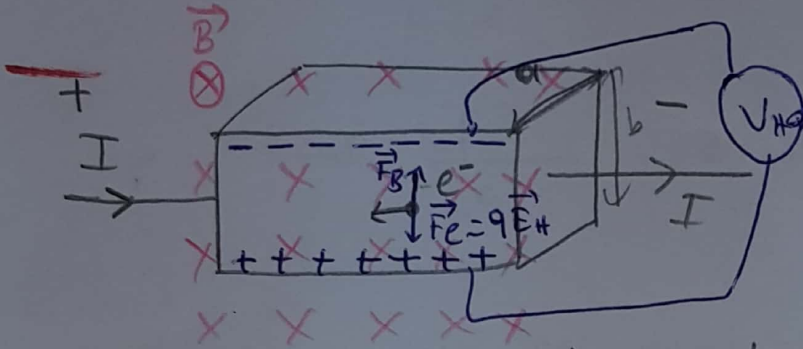 B
+
I
a
b
-
V_H
- - - - - - - -
F_B
e⁻
F_e = qE_H
I
+ + + + + + +